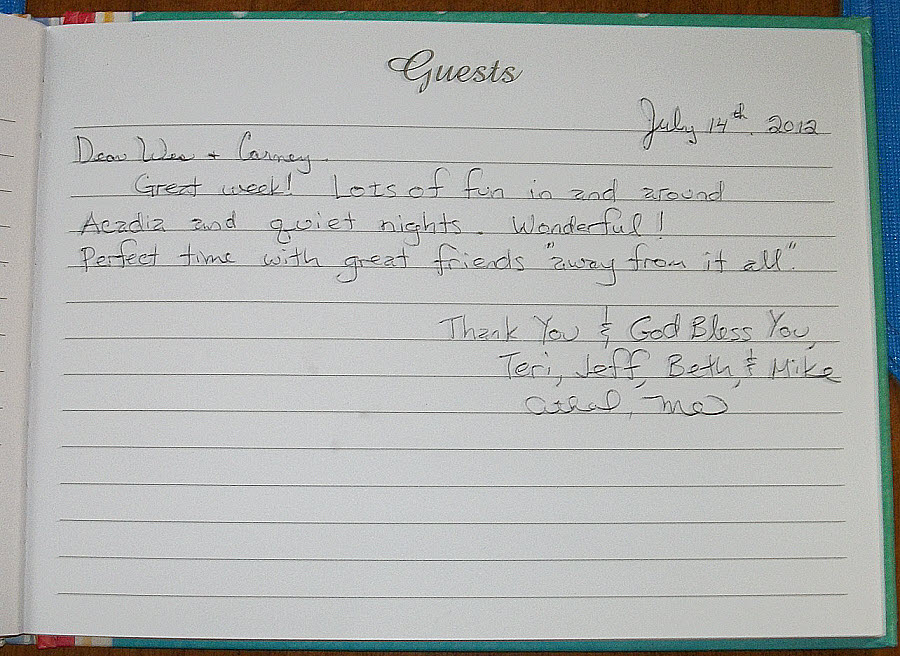 Guests
July 14th. 2012
Dear Wes + Carney.
Great week! Lots of fun in and around
Acadia and quiet nights. Wonderful!
Perfect time with great friends "away from it all".
Thank You & God Bless You,
Teri, Jeff, Beth, & Mike
Athol, Ma